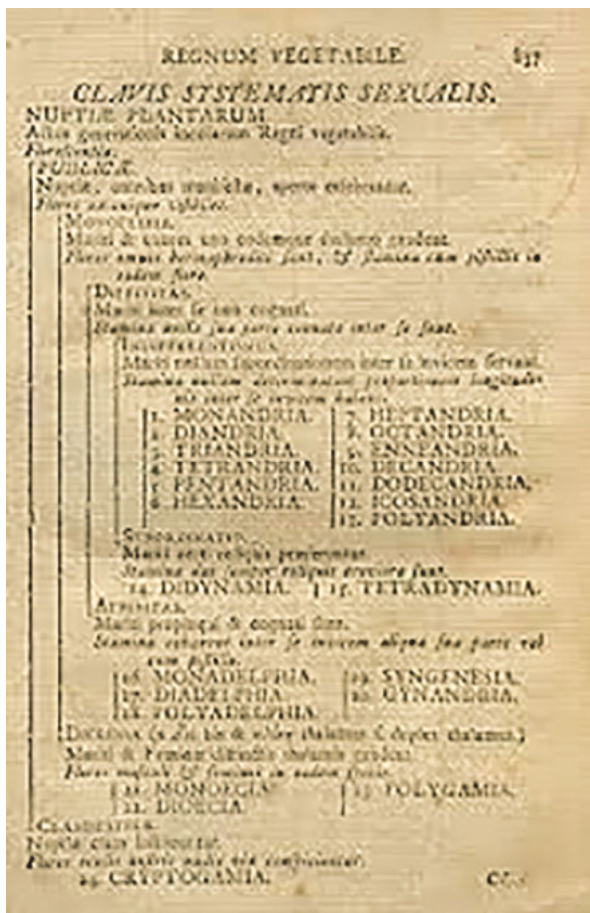 REGNUM VEGETABILE. 837
CLAVIS SYSTEMATIS SEXUALIS.
NUPTIÆ PLANTARUM.
Actus generationis incolarum Regni vegetabilis.
Florescentia.
PUBLICÆ.
Nuptiæ, omnibus manifestæ, aperte celebrantur.
Flores unicuique visibiles.
MONOCLINIA.
Mariti & uxores uno eodemque thalamo gaudent.
Flores omnes hermaphroditi sunt, & stamina cum pistillis in
eodem flore.
DIFFINITAS.
Mariti inter se non cognati.
Stamina nulla sua parte connata inter se sunt.
INDIFFERENTISMUS.
Mariti nullam subordinationem inter se invicem servant.
Stamina nullam determinatam proportionem longitudi-
nis inter se invicem habent.
1. MONANDRIA. 7. HEPTANDRIA.
2. DIANDRIA. 8. OCTANDRIA.
3. TRIANDRIA. 9. ENNEANDRIA.
4. TETRANDRIA. 10. DECANDRIA.
5. PENTANDRIA. 11. DODECANDRIA.
6. HEXANDRIA. 12. ICOSANDRIA.
13. POLYANDRIA.
SUBORDINATIO.
Mariti certi reliquis præferuntur.
Stamina duo semper reliquis breviora sunt.
14. DIDYNAMIA. 15. TETRADYNAMIA.
AFFINITAS.
Mariti propinqui & cognati sunt.
Stamina cohærent inter se invicem aliqua sua parte vel
cum pistillo.
16. MONADELPHIA. 19. SYNGENESIA.
17. DIADELPHIA. 20. GYNANDRIA.
18. POLYADELPHIA.
DICLINIA (a dis bis & thalamus s. duplex thalamus.)
Mariti & Feminæ distinctis thalamis gaudent.
Flores masculi & feminei in eadem specie.
21. MONOECIA. 23. POLYGAMIA.
22. DIOECIA.
CLANDESTINÆ.
Nuptiæ clam instituuntur.
Flores oculis nostris nudis vix conspiciuntur.
24. CRYPTOGAMIA.